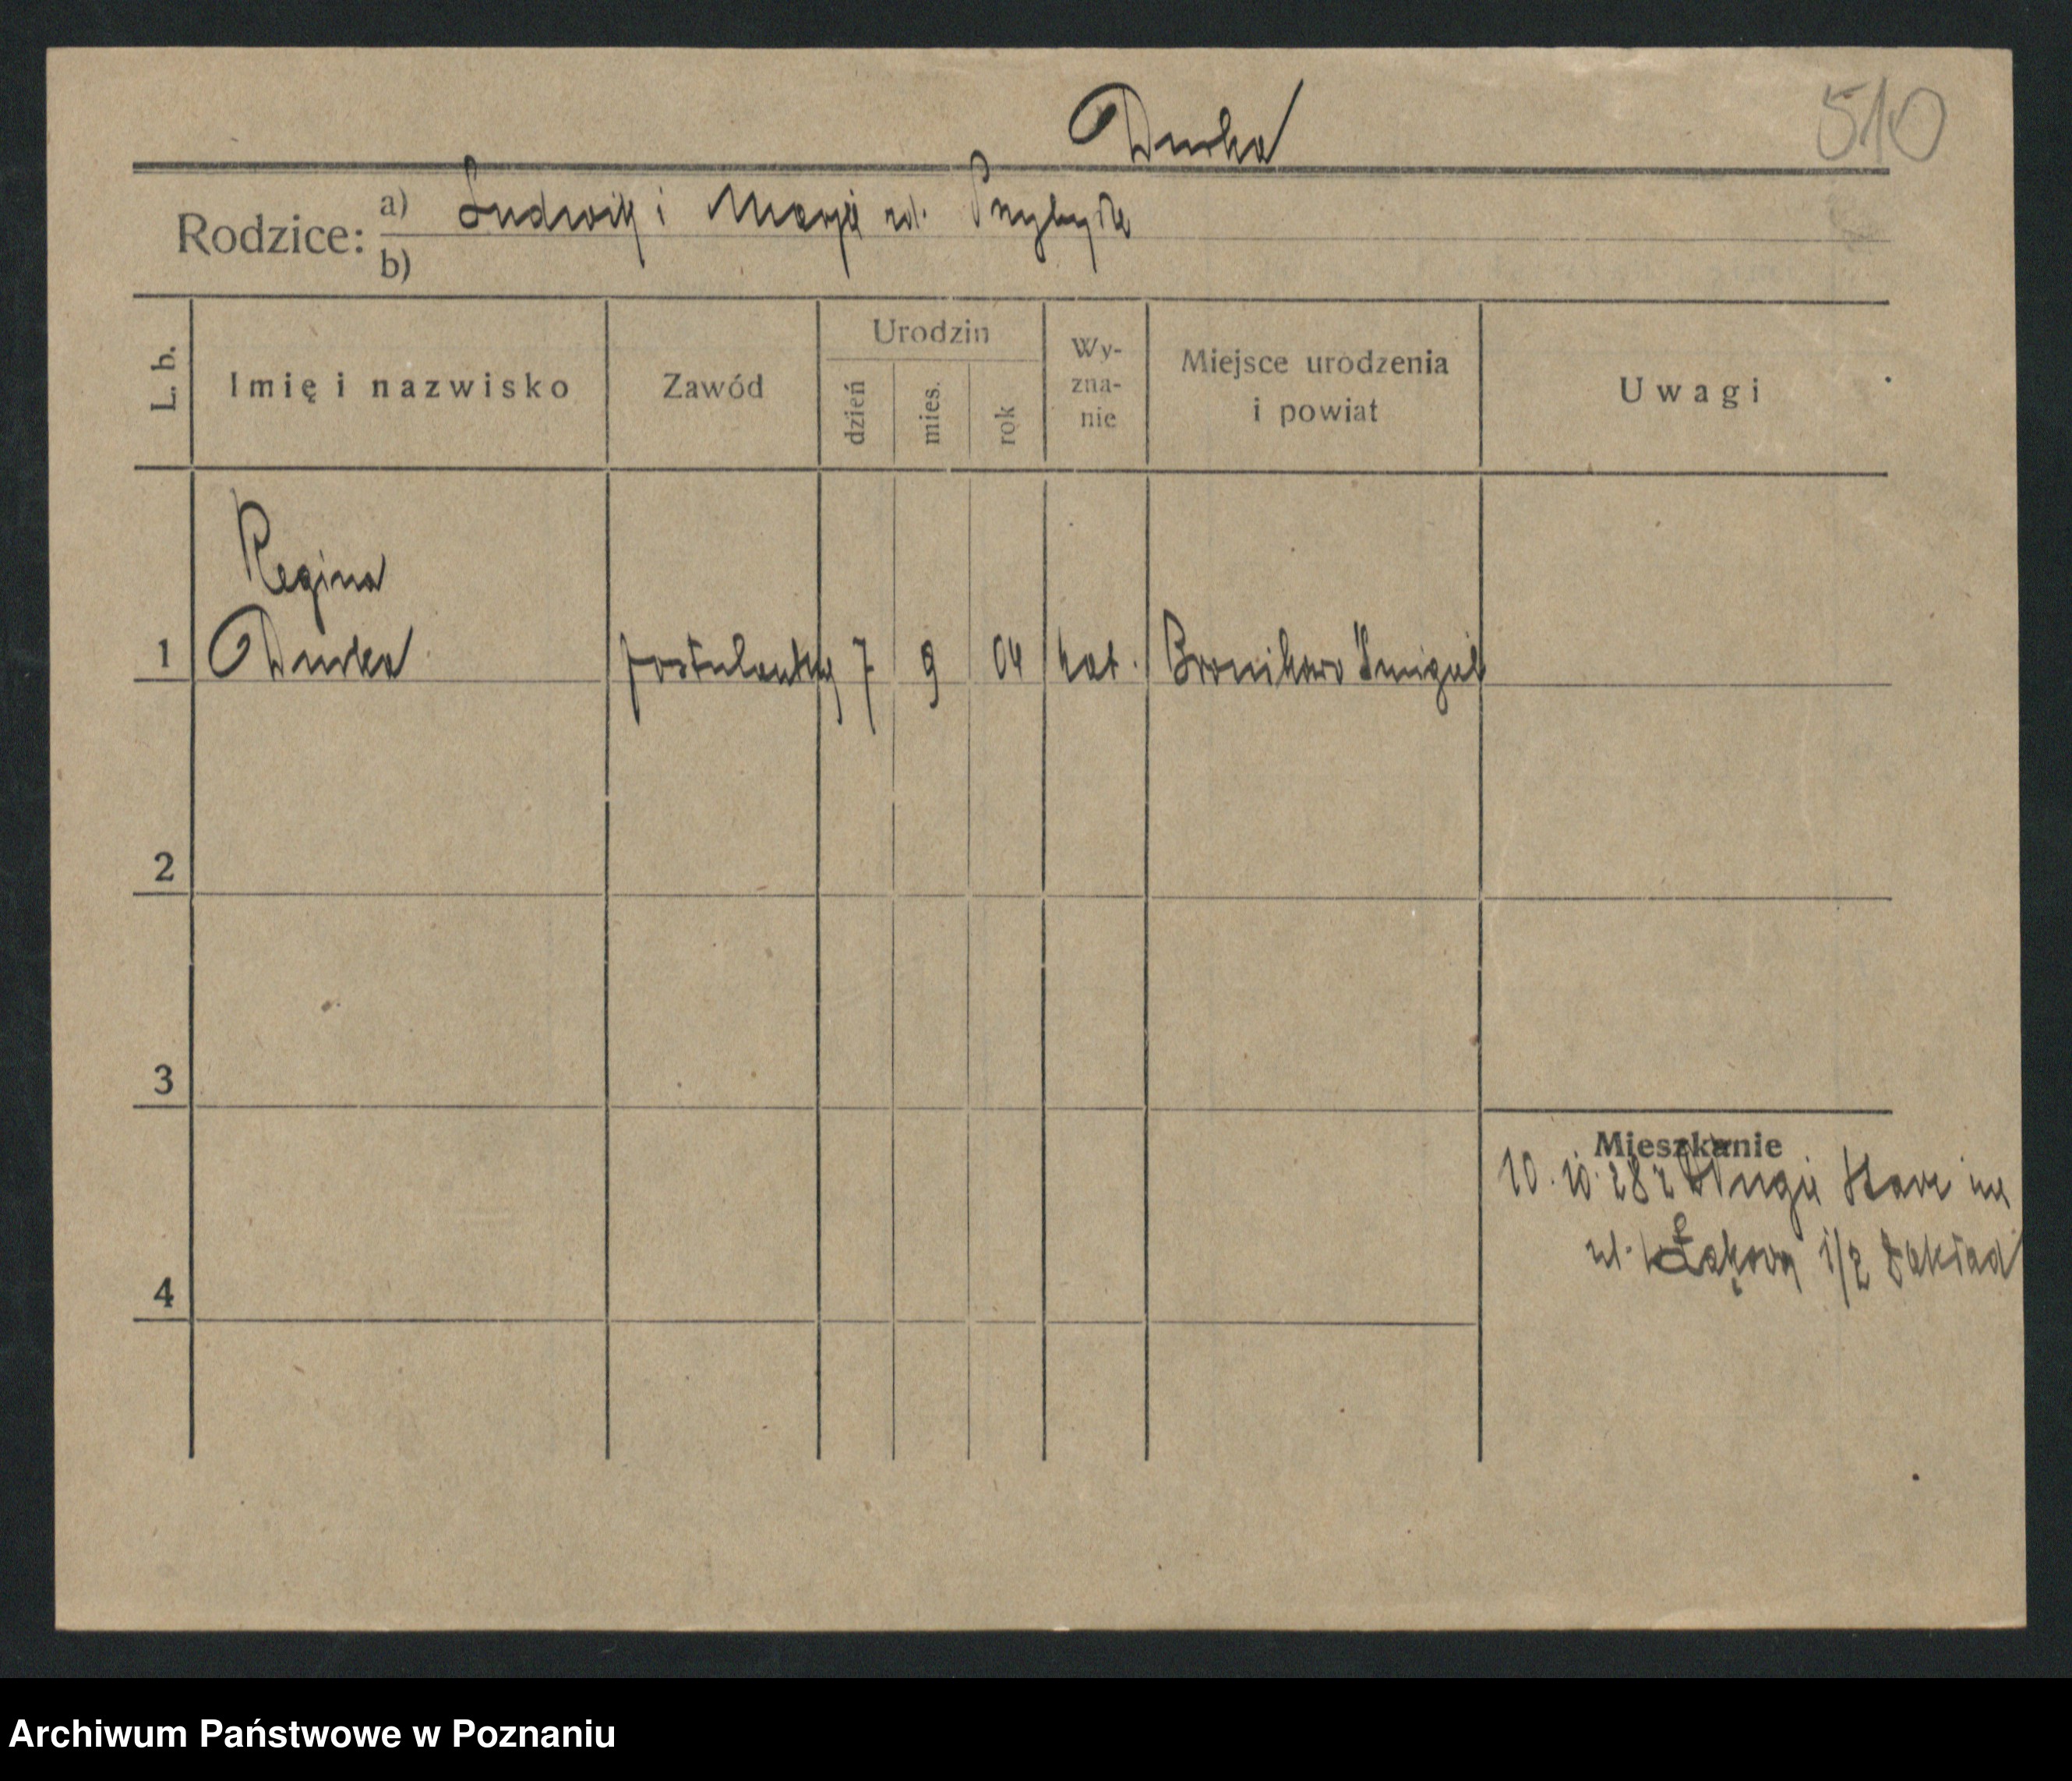 Durka
510
Rodzice: a) Ludwik i Marja ur. Przybyła
b)
L. b.
Imię i nazwisko
Zawód
Urodzin
dzień
mies.
rok
Wy-
zna-
nie
Miejsce urodzenia
i powiat
Uwagi
Regina
1 Durka postulantka 7 9 04 kat. Bronikowo Śmigiel
2
3
Mieszkanie
10. 10. 28 z Długie Stare na
ul. Łąkową 1/2 Zakład
4
Archiwum Państwowe w Poznaniu